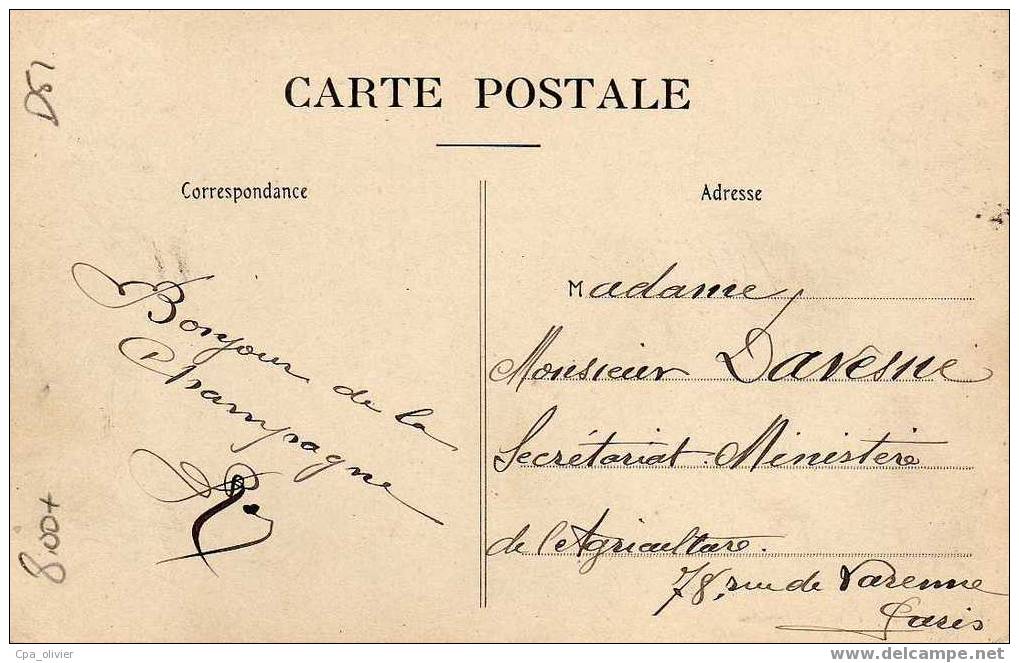 D51
CARTE POSTALE
Correspondance
Adresse
Bonjour de la
Champagne
Madame,
Monsieur Davesne
Secrétariat Ministère
de l'Agriculture.
78, rue de Varenne
Paris
8,00+
Cpa_olivier
www.delcampe.net